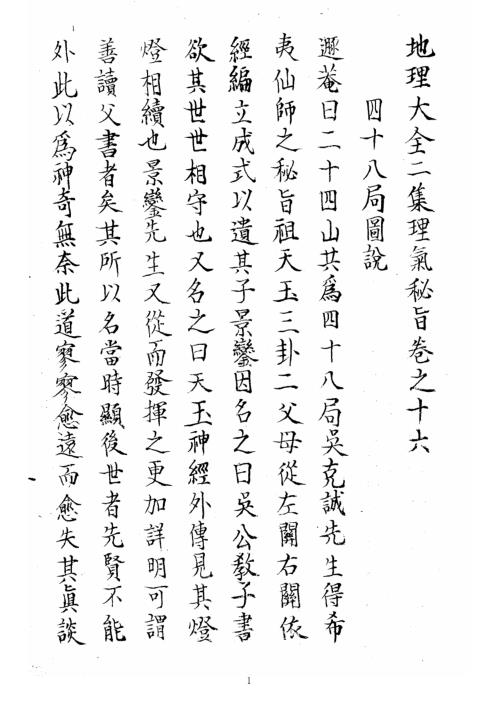 地理大全二集理氣秘旨卷之十六
四十八局圖說
遯菴曰二十四山共爲四十八局吳克誠先生得希
夷仙師之秘旨祖天玉三卦二父母從左關右關依
經編立成式以遺其子景鸞因名之曰吳公教子書
欲其世世相守也又名之曰天玉神經外傳見其燈
燈相續也景鸞先生又從而發揮之更加詳明可謂
善讀父書者矣其所以名當時顯後世者先賢不能
外此以爲神奇無奈此道寥寥愈遠而愈失其眞談
1